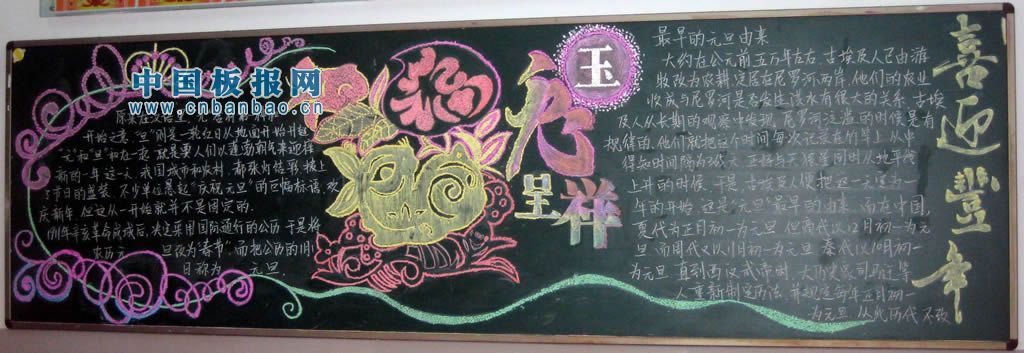 中国板报网
www.cnbanbao.cn
开始之意"旦"则是一轮红日从地面开始升起
元"和"旦"和在一起 就是要人们以蓬勃朝气来迎接
新的一年 这一天 我国城市和农村 都张灯结彩 披上
了节日的盛装 不少单位悬起"庆祝元旦"的巨幅标语 欢
庆新年 但 从一开始就并不是固定的.
1911年辛亥革命成功后 决定采用国际通行的公历 于是将
农历元 旦改为"春节" 而把公历的1月1
日称为 元旦
玉
虎
呈
祥
最早的元旦由来
大约在公元前五万年左右 古埃及人已由游
牧改为农耕 定居在尼罗河两岸 他们的农业
收成与尼罗河是否发生洪水有很大的关系 古埃
及人从长期的观察中发现 尼罗河泛滥的时候是有
规律的 他们就把这个时间每次记录在竹竿上 从中
得知时间隔为365天
上升的时候 于是 古埃及人便把这一天定为一
年的开始 这是"元旦"最早的由来 而在中国
夏代为正月初一为元旦 但商代以12月初一为元
旦 而周代又以11月初一为元旦 秦代以10月初一
为元旦 直到西汉武帝时 大历史家司马迁等
人重新制定历法 并规定每年正月初一
为元旦 从此历代不改
喜迎豐年